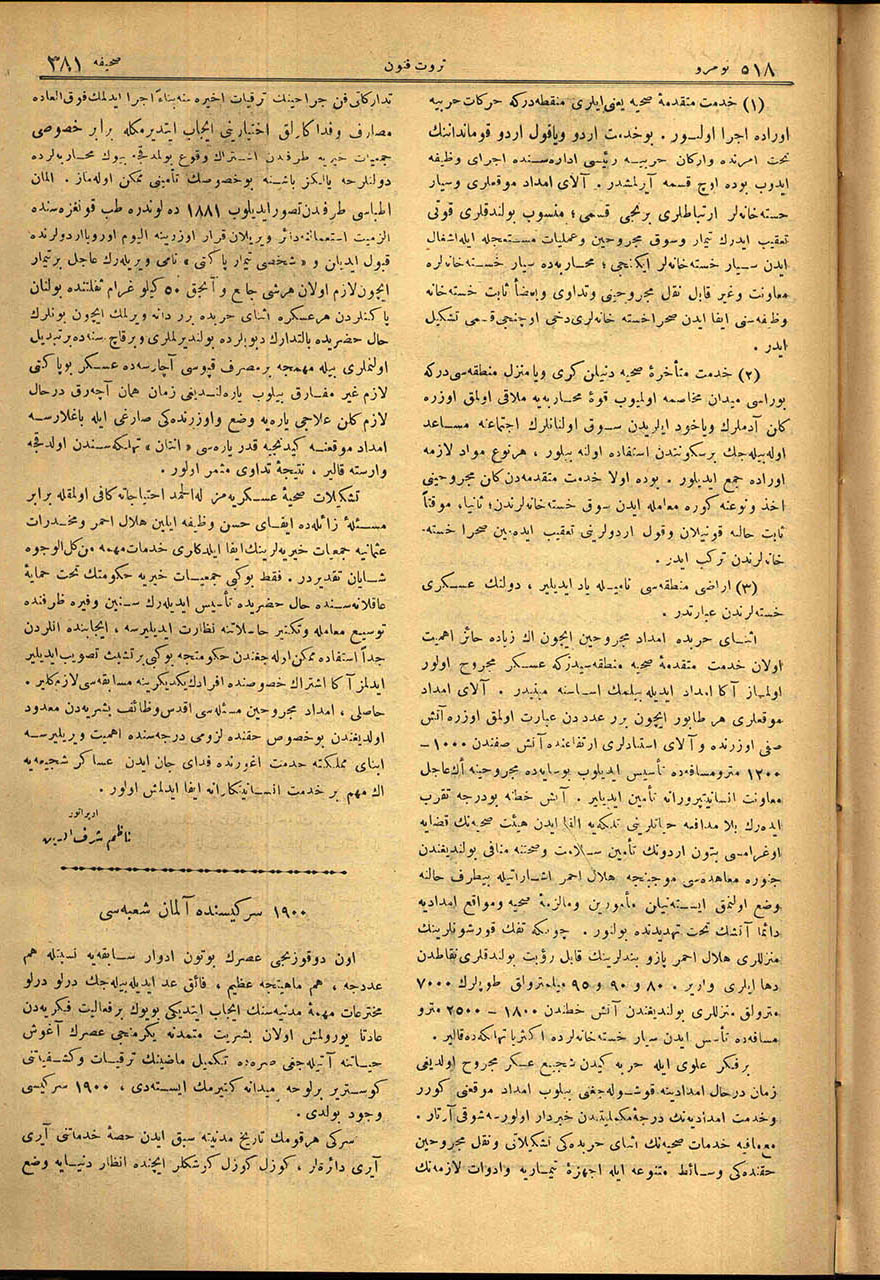 ٥١٨ نومرو
ثروت فنون
صحیفه ٣٨١
(١) خدمت متقدمهٔ صحیه یعنی ایلری منطقه درکه حرکات حربیه
اوراده اجرا اولنور . بوخدمت اردو ویاقول اردو قومانداننك
تحت امرنده وارکان حربیه رئیسی اداره سنده اجرای وظیفه
ایدرب بوده اوچ قسمه آیرلمشدر . آلای امداد موقعلری وسیار
خسته خانه لر ارتباطلری برنجی قسمی ؛ منسوب بولندقلری قوتی
تعقیب ایدرك تیمار وسوق مجروحین وعملیات مستعجله ایله اشغال
ایدن سیار خسته خانه لر ایکنجی ؛ محاربه ده سیار خسته خانه لره
معاونت وغیر قابل نقل مجروحینی وتداوی وبعضاً ثابت خسته خانه
وظیفه سنی ایفا ایدن صحرا خسته خانه لری دخی اوچنجی قسمی تشکیل
ایدر .
(٢) خدمت متأخرهٔ صحیه دنیلن کری ویا منزل منطقه سی درکه
بوراسی میدان مخاصمه اولمیوب قوهٔ محاربه یه ملاقی اولمق اوزره
کلن آدملرك ویاخود ایلریدن سوق اولنانلرك اجتماعنه مساعد
اوله بیله جك برسکونتدن استفاده اولنه بیلور ، هرنوع مواد لازمه
اوراده جمع ایدیلور . بوده اولا خدمت متقدمه دن کلن مجروحینی
اخذ ونوعنه کوره معامله ایدن سوق خسته خانه لرندن ؛ ثانیا، موقتاً
ثابت حاله قونیلان وقول اردولرینی تعقیب ایده مین صحرا خسته
خانه لرندن ترکب ایدر .
(٣) اراضی منطقه سی نامیله یاد ایدیلیر ، دولتك عسکری
خسته لرندن عبارتدر .
اثنای حربده امداد مجروحین ایچون اك زیاده حائز اهمیت
اولان خدمت متقدمهٔ صحیه منطقه سیدرکه عسکر مجروح اولور
اولماز آکا امداد ایدیله بیلمك اساسنه مبنیدر . آلای امداد
موقعلری هر طابور ایچون برر عددن عبارت اولمق اوزره آتش
صفی اوزرنده وآلای استنادلری ارتفاعنده آتش صفندن ١٠٠٠ –
١٢٠٠ مترو مسافه ده تأسیس ایدیلوب بوسایه ده مجروحینه اك عاجل
معاونت انسانیتپرورانه تأمین ایدیلیر . آتش خطنه بودرجه تقرب
ایده رك بلا مدافعه حیاتلرینی تهلکه یه القا ایدن هیئت صحیه نك قضایه
اوغرامسی بتون اردونك تأمین سلامت وصحتنه منافی بولندیغندن
جنوره معاهده سی موجبنجه هلال احمر اشاراتیله بیطرف حالنه
وضع اولنمق ایستنیلن مأمورین ومالزمهٔ صحیه ومواقع امدادیه
دائما آتشك تحت تهدیدنده بولنور . چونکه تفنك قورشونلرینك
منزللری هلال احمر بازو بندلرینك قابل رؤیت بولندقلری نقاطدن
دها ایلری واریر . ٨٠ و ٩٠ و ٩٥ میلیمترولق طوپلرك ٧٠٠٠
مترولق منزللری بولندیغندن آتش خطندن ١٨٠٠ – ٢٥٠٠ مترو
مسافه ده تأسس ایدن سیار خسته خانه لرده اکثریا تهلکه ده قالیر .
برفکر علوی ایله حربه کیدن شجیع عسکر مجروح اولدیغی
زمان درحال امدادینه قوشوله جغنی بیلوب امداد موقعنی کورر
وخدمت امدادیه نك درجهٔ مکملیتندن خبردار اولورسه شوقی آرتار .
مع مافیه خدمات صحیه نك اثنای حربده کی تشکیلاتی ونقل مجروحین
حقنده کی وسائط متنوعه ایله اجهزهٔ تیماریه وادوات لازمه نك
تدارکاتی فن جراحینك ترقیات اخیره سنه بناءً اجرا ایدلمك فوق العاده
مصارف وفداکارلق اختیارینی ایجاب ایتدیرمکله برابر خصوصی
جمعیات خیریه طرفندن اشتراك وقوع بولمدقجه بیوك محاربه لرده
دولتلرجه یالکز باشنه بوخصوصك تأمینی ممکن اوله ماز . آلمان
اطباسی طرفندن تصور ایدیلوب ١٨٨١ ده لوندره طب قونغره سنده
الزمیت استعمالنه دائر ویریلان قرار اوزرینه الیوم اوروپا اردولرنده
قبول ایدیلن و « شخصی تیمار پاکتی » نامی ویریله رك عاجل بر تیمار
ایچون لازم اولان هرشی جامع و آنجق ٥٠ کیلو غرام ثقلتنده بولنان
پاکتلردن هرعسکره اثنای حربده برر دانه ویرلمك ایچون بونلرك
حال حضرده بالتدارك دبولرده بولندیرلملری وبرقاچ سنه ده برتبدیل
اولنملری بیله مهمجه برمصرف قپوسی آچارسه ده عسکر بوپاکتی
لازم غیر مفارق بیلوب یاره لندیغی زمان همان آچه رق درحال
لازم کلن علاجی یاره یه وضع واوزرنده کی صارغی ایله باغلارسه
امداد موقعنه کیدنجیه قدر یاره سی « انتان » تهلکه سندن اولدقجه
وارسته قالیر ، نتیجهٔ تداوی مثمر اولور .
تشکیلات صحیهٔ عسکریه مز له الحمد احتیاجاته کافی اولمقله برابر
مسئلهٔ زائله ده ایفای حسن وظیفه ایلین هلال احمر ومخدرات
عثمانیه جمعیات خیریه لرینك ایفا ایلدکلری خدمات مهمه من کل الوجوه
شایان تقدیردر . فقط بوکبی جمعیات خیریه حکومتك تحت حمایهٔ
عاقلانه سنده حال حضرده تأسیس ایدیله رك سنین وفیره ظرفنده
توسیع معامله وتکثیر حاصلاتنه نظارت ایدیلیرسه ، ایجابنده انلردن
جداً استفاده ممکن اوله جغندن حکومتجه بوکبی برتشبث تصویب ایدیلیر
ایدلمز آکا اشتراك خصوصنده افرادك یکدیکرینه مسابقه سی لازم کلیر .
حاصلی ، امداد مجروحین مسئله سی اقدس وظائف بشریه دن معدود
اولدیغندن بوخصوص حقنده لزومی درجه سنده اهمیت ویریلیرسه
ابنای مملکته خدمت اغورنده فدای جان ایدن عساکر شجیعه یه
اك مهم بر خدمت انسانیتکارانه ایفا ایدلمش اولور .
اوپراتور
ناظم شرف الدین
١٩٠٠ سرکیسنده آلمان شعبه سی
اون دوقوزنجی عصرك بوتون ادوار سابقه یه نسبتله هم
عددجه ، هم ماهیتجه عظیم ، فائق عد ایدیله بیله جك درلو درلو
مخترعات مهمهٔ مدنیه سنك ایجاب ایتدیکی بویوك برفعالیت فکریه دن
عادتا یورولمش اولان بشریت متمدنه یکرمنجی عصرك آغوش
حیاتنه آتیله جغی صره ده تکمیل ماضینك ترقیات وکشفیاتنی
کوستریر برلوحه میدانه کتیرمك ایسته دی ، ١٩٠٠ سرکیسی
وجود بولدی .
سرکی هرقومك تاریخ مدنیته سبق ایدن حصهٔ خدماتنی آیری
آیری دائره لر ، کوزل کوزل کوشکلر ایچنده انظار دنیایه وضع